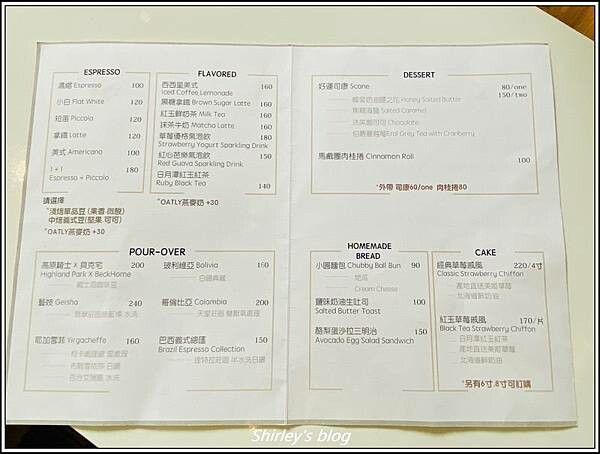 ESPRESSO
濃縮 Espresso 100
小白 Flat White 120
短笛 Piccolo 120
拿鐵 Latte 120
美式 Americano 100
1+1 180
Espresso + Piccolo
請選擇
*淺焙單品豆 (果香.微酸)
中焙義式豆(堅果.可可)
*OATLY燕麥奶 +30
FLAVORED
西西里美式 160
Iced Coffee,Lemonade
黑糖拿鐵 Brown Sugar Latte 160
紅玉鮮奶茶 Milk Tea 160
抹茶牛奶 Matcha Latte 160
草莓優格氣泡飲 180
Strawberry Yogurt Sparkling Drink
紅心芭樂氣泡飲 150
Red Guava Sparkling Drink
日月潭紅玉紅茶
Ruby Black Tea 140
*OATLY燕麥奶 +30
POUR-OVER
高原騎士 X 貝克宅 200
Highland Park X BeckHome
威士忌咖啡豆
藝妓 Geisha 240
耶加雪菲 Yirgacheffe 160
玻利維亞 Bolivia 160
哥倫比亞 Colombia 200
巴西義式總匯 150
Brazil Espresso Collection
DESSERT
好運司康 Scone 80/one
150/two
Honey Salted Butter
焦糖海鹽 Salted Caramel
法芙娜可可 Chocolate
伯爵蔓越莓Earl Grey Tea with Cranberry
馬戲團肉桂捲 Cinnamon Roll 100
*外帶 司康60/one 肉桂捲80
HOMEMADE
BREAD
小圓麵包 Chubby Ball Bun 90
地瓜
Cream Cheese
鹽味奶油生吐司 100
Salted Butter Toast
酪梨蛋沙拉三明治 150
Avocado Egg Salad Sandwich
CAKE
經典草莓戚風 220/4寸
Classic Strawberry Chiffon
產地直送美姬草莓
北海道鮮奶油
紅玉草莓戚風 170/片
Black Tea Strawberry Chiffon
日月潭紅玉紅茶
產地直送美姬草莓
北海道鮮奶油
*另有6寸.8寸可訂購
Shirley's blog